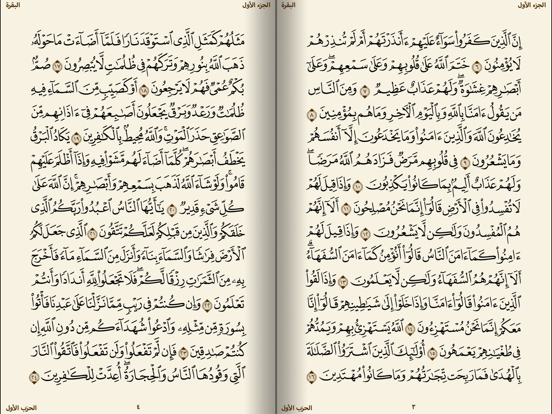 الجزء الأول
البقرة
إِنَّ ٱلَّذِينَ كَفَرُوا۟ سَوَآءٌ عَلَيْهِمْ ءَأَنذَرْتَهُمْ أَمْ لَمْ تُنذِرْهُمْ
لَا يُؤْمِنُونَ ٦ خَتَمَ ٱللَّهُ عَلَىٰ قُلُوبِهِمْ وَعَلَىٰ سَمْعِهِمْ ۖ وَعَلَىٰٓ
أَبْصَـٰرِهِمْ غِشَـٰوَةٌ ۖ وَلَهُمْ عَذَابٌ عَظِيمٌ ٧ وَمِنَ ٱلنَّاسِ
مَن يَقُولُ ءَامَنَّا بِٱللَّهِ وَبِٱلْيَوْمِ ٱلْـَٔاخِرِ وَمَا هُم بِمُؤْمِنِينَ ٨
يُخَـٰدِعُونَ ٱللَّهَ وَٱلَّذِينَ ءَامَنُوا۟ وَمَا يَخْدَعُونَ إِلَّآ أَنفُسَهُمْ
وَمَا يَشْعُرُونَ ٩ فِى قُلُوبِهِم مَّرَضٌ فَزَادَهُمُ ٱللَّهُ مَرَضًا ۖ
وَلَهُمْ عَذَابٌ أَلِيمٌۢ بِمَا كَانُوا۟ يَكْذِبُونَ ١٠ وَإِذَا قِيلَ لَهُمْ
لَا تُفْسِدُوا۟ فِى ٱلْأَرْضِ قَالُوٓا۟ إِنَّمَا نَحْنُ مُصْلِحُونَ ١١ أَلَآ إِنَّهُمْ
هُمُ ٱلْمُفْسِدُونَ وَلَـٰكِن لَّا يَشْعُرُونَ ١٢ وَإِذَا قِيلَ لَهُمْ
ءَامِنُوا۟ كَمَآ ءَامَنَ ٱلنَّاسُ قَالُوٓا۟ أَنُؤْمِنُ كَمَآ ءَامَنَ ٱلسُّفَهَآءُ ۗ
أَلَآ إِنَّهُمْ هُمُ ٱلسُّفَهَآءُ وَلَـٰكِن لَّا يَعْلَمُونَ ١٣ وَإِذَا لَقُوا۟
ٱلَّذِينَ ءَامَنُوا۟ قَالُوٓا۟ ءَامَنَّا وَإِذَا خَلَوْا۟ إِلَىٰ شَيَـٰطِينِهِمْ قَالُوٓا۟ إِنَّا
مَعَكُمْ إِنَّمَا نَحْنُ مُسْتَهْزِءُونَ ١٤ ٱللَّهُ يَسْتَهْزِئُ بِهِمْ وَيَمُدُّهُمْ
فِى طُغْيَـٰنِهِمْ يَعْمَهُونَ ١٥ أُو۟لَـٰٓئِكَ ٱلَّذِينَ ٱشْتَرَوُا۟ ٱلضَّلَـٰلَةَ
بِٱلْهُدَىٰ فَمَا رَبِحَت تِّجَـٰرَتُهُمْ وَمَا كَانُوا۟ مُهْتَدِينَ ١٦
٣
الحزب الأول
الجزء الأول
البقرة
مَثَلُهُمْ كَمَثَلِ ٱلَّذِى ٱسْتَوْقَدَ نَارًا فَلَمَّآ أَضَآءَتْ مَا حَوْلَهُۥ
ذَهَبَ ٱللَّهُ بِنُورِهِمْ وَتَرَكَهُمْ فِى ظُلُمَـٰتٍ لَّا يُبْصِرُونَ ١٧ صُمٌّۢ
بُكْمٌ عُمْىٌ فَهُمْ لَا يَرْجِعُونَ ١٨ أَوْ كَصَيِّبٍ مِّنَ ٱلسَّمَآءِ فِيهِ
ظُلُمَـٰتٌ وَرَعْدٌ وَبَرْقٌ يَجْعَلُونَ أَصَـٰبِعَهُمْ فِىٓ ءَاذَانِهِم مِّنَ
ٱلصَّوَٰعِقِ حَذَرَ ٱلْمَوْتِ ۚ وَٱللَّهُ مُحِيطٌۢ بِٱلْكَـٰفِرِينَ ١٩ يَكَادُ ٱلْبَرْقُ
يَخْطَفُ أَبْصَـٰرَهُمْ ۖ كُلَّمَآ أَضَآءَ لَهُم مَّشَوْا۟ فِيهِ وَإِذَآ أَظْلَمَ عَلَيْهِمْ
قَامُوا۟ ۚ وَلَوْ شَآءَ ٱللَّهُ لَذَهَبَ بِسَمْعِهِمْ وَأَبْصَـٰرِهِمْ ۚ إِنَّ ٱللَّهَ عَلَىٰ
كُلِّ شَىْءٍ قَدِيرٌ ٢٠ يَـٰٓأَيُّهَا ٱلنَّاسُ ٱعْبُدُوا۟ رَبَّكُمُ ٱلَّذِى
خَلَقَكُمْ وَٱلَّذِينَ مِن قَبْلِكُمْ لَعَلَّكُمْ تَتَّقُونَ ٢١ ٱلَّذِى جَعَلَ لَكُمُ
ٱلْأَرْضَ فِرَٰشًا وَٱلسَّمَآءَ بِنَآءً وَأَنزَلَ مِنَ ٱلسَّمَآءِ مَآءً فَأَخْرَجَ
بِهِۦ مِنَ ٱلثَّمَرَٰتِ رِزْقًا لَّكُمْ ۖ فَلَا تَجْعَلُوا۟ لِلَّهِ أَندَادًا وَأَنتُمْ
تَعْلَمُونَ ٢٢ وَإِن كُنتُمْ فِى رَيْبٍ مِّمَّا نَزَّلْنَا عَلَىٰ عَبْدِنَا فَأْتُوا۟
بِسُورَةٍ مِّن مِّثْلِهِۦ وَٱدْعُوا۟ شُهَدَآءَكُم مِّن دُونِ ٱللَّهِ إِن
كُنتُمْ صَـٰدِقِينَ ٢٣ فَإِن لَّمْ تَفْعَلُوا۟ وَلَن تَفْعَلُوا۟ فَٱتَّقُوا۟ ٱلنَّارَ
ٱلَّتِى وَقُودُهَا ٱلنَّاسُ وَٱلْحِجَارَةُ ۖ أُعِدَّتْ لِلْكَـٰفِرِينَ ٢٤
٤
الحزب الأول